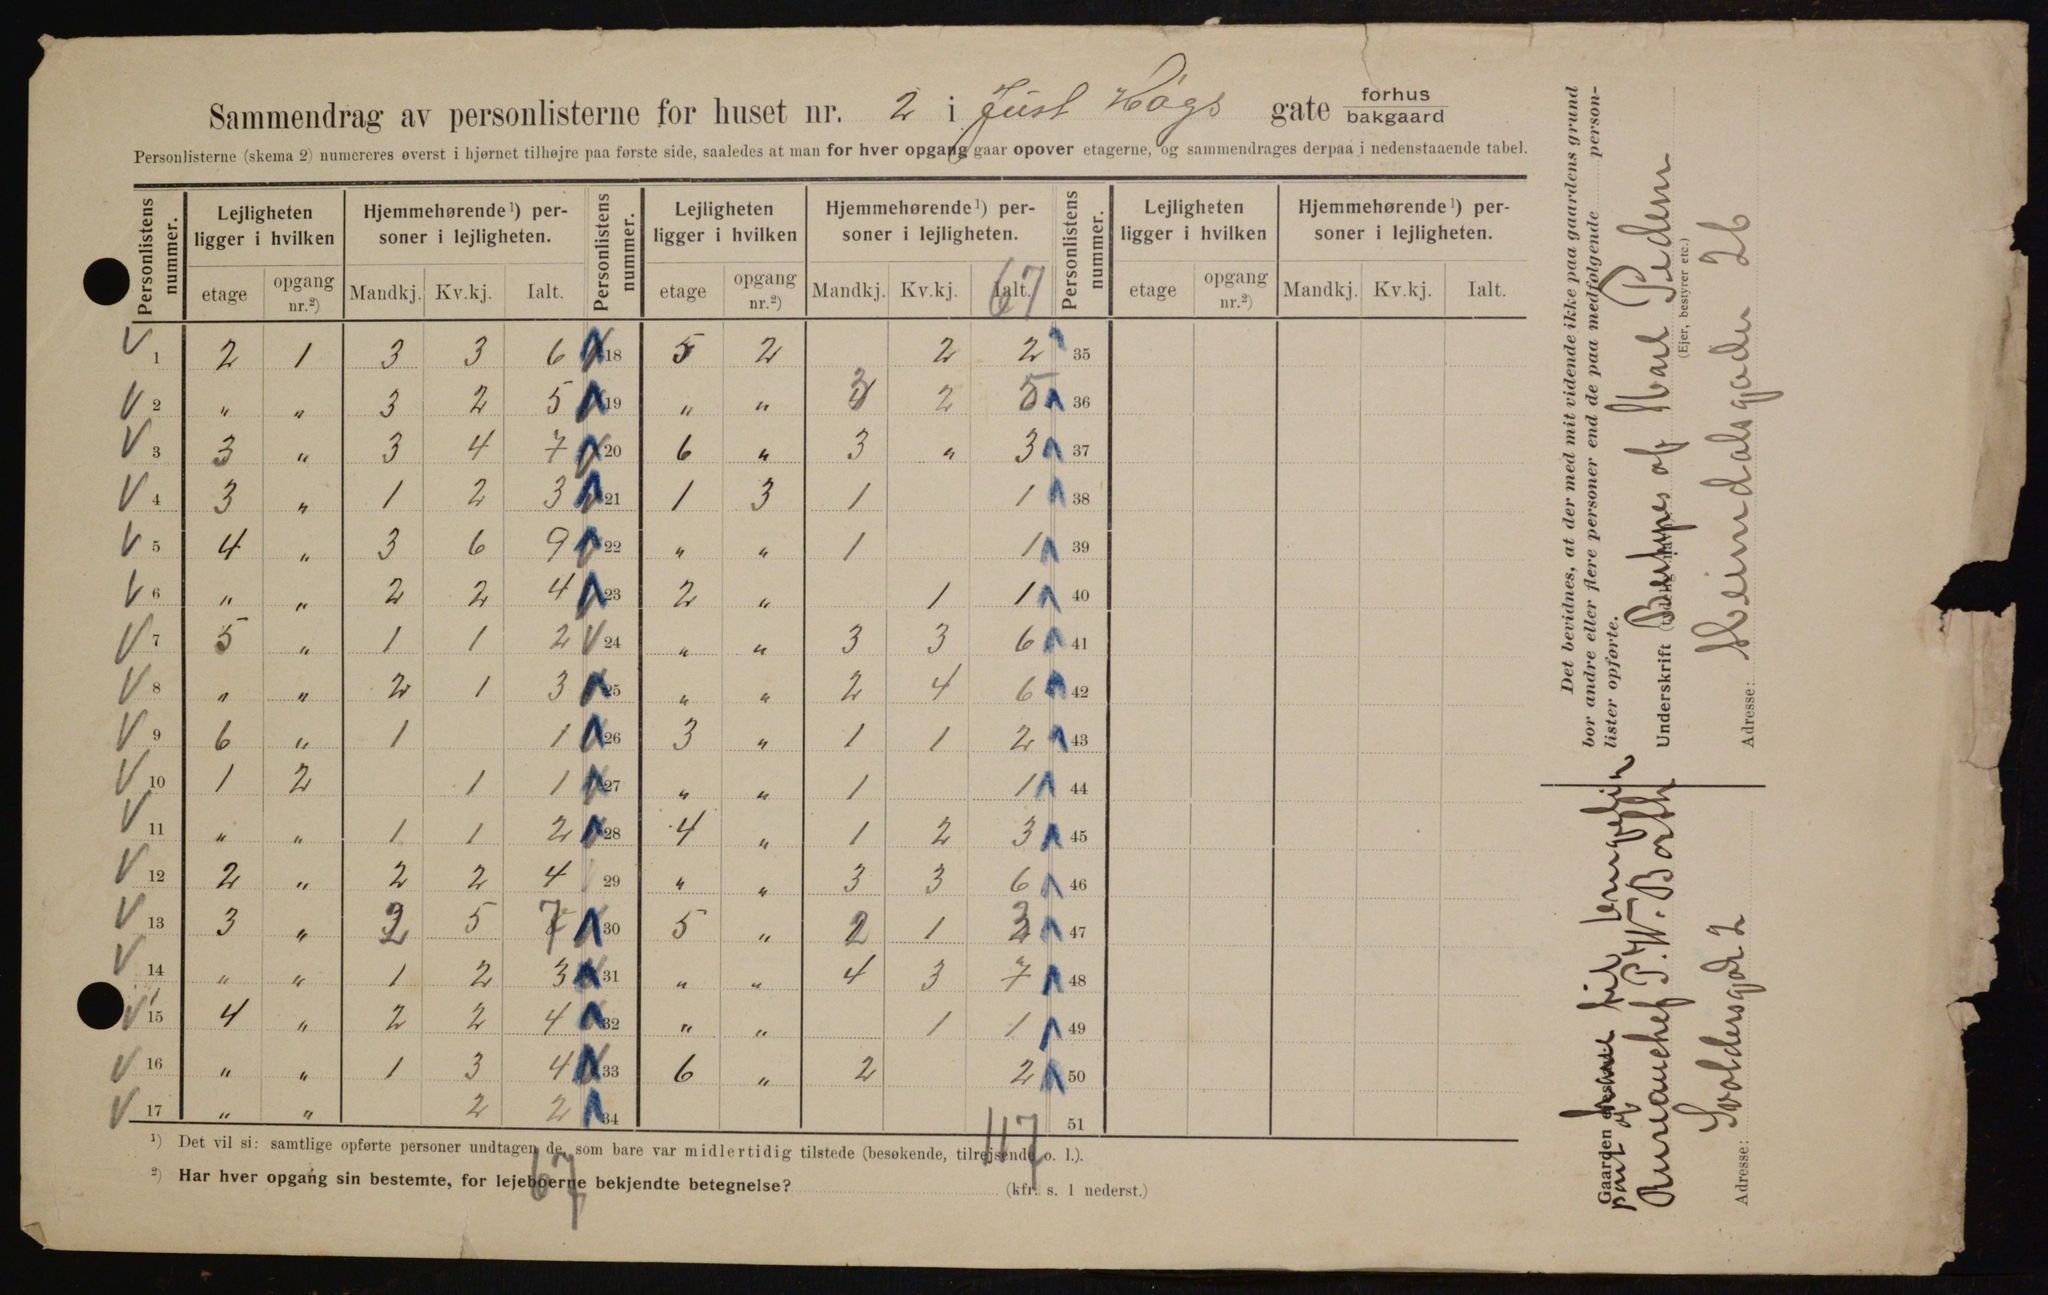 Sammendrag av personlisterne for huset nr. 2 i Just Høgs gate forhus bakgaard
Personlisterne (skema 2) numereres øverst i hjørnet tilhøjre paa første side, saaledes at man for hver opgang gaar opover etagerne, og sammendrages derpaa i nedenstaaende tabel.
Personlistens nummer. Lejligheten ligger i hvilken Hjemmehørende ¹) personer i lejligheten. Personlistens nummer. Lejligheten ligger i hvilken Hjemmehørende ¹) personer i lejligheten. Personlistens nummer. Lejligheten ligger i hvilken Hjemmehørende ¹) personer i lejligheten.
etage opgang nr.²) Mandkj. Kv.kj. Ialt. etage opgang nr.²) Mandkj. Kv.kj. Ialt. etage opgang nr.²) Mandkj. Kv.kj. Ialt.
67
1 2 1 3 3 6 18 5 2 2 2 35
2 „ „ 3 2 5 19 „ „ 3 2 5 36
3 3 „ 3 4 7 20 6 „ 3 „ 3 37
4 3 „ 1 2 3 21 1 3 1 1 38
5 4 „ 3 6 9 22 „ „ 1 1 39
6 „ „ 2 2 4 23 2 „ 1 1 40
7 5 „ 1 1 2 24 „ „ 3 3 6 41
8 „ „ 2 1 3 25 „ „ 2 4 6 42
9 6 „ 1 1 26 3 „ 1 1 2 43
10 1 2 1 1 27 „ „ 1 1 44
11 „ „ 1 1 2 28 4 „ 1 2 3 45
12 2 „ 2 2 4 29 „ „ 3 3 6 46
13 3 „ 2 5 7 30 5 „ 2 1 3 47
14 „ „ 1 2 3 31 „ „ 4 3 7 48
15 4 „ 2 2 4 32 „ „ 1 1 49
16 „ „ 1 3 4 33 6 „ 2 2 50
17 „ „ 2 2 34 51
¹) Det vil si: samtlige opførte personer undtagen de, som bare var midlertidig tilstede (besøkende, tilrejsende o. l.).
²) Har hver opgang sin bestemte, for lejeboerne bekjendte betegnelse? (kfr. s. 1 nederst.)
67
117
Det bevidnes, at der med mit vidende ikke paa gaardens grund
bor andre eller flere personer end de paa medfølgende person-
lister opførte.
Underskrift Bestyres af Karl Pedersen
(Ejer, bestyrer etc.)
Adresse: Heimdalsgaden 26
Gaarden
Bureauchef P. W. Barth
Adresse: Svoldersgade 2